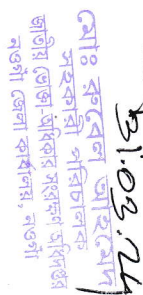 ৩১.০৩.২৫
মোঃ রুবেল আহমেদ
সহকারী পরিচালক
জাতীয় ভোক্তা-অধিকার সংরক্ষণ অধিদপ্তর
নওগাঁ জেলা কার্যালয়, নওগাঁ